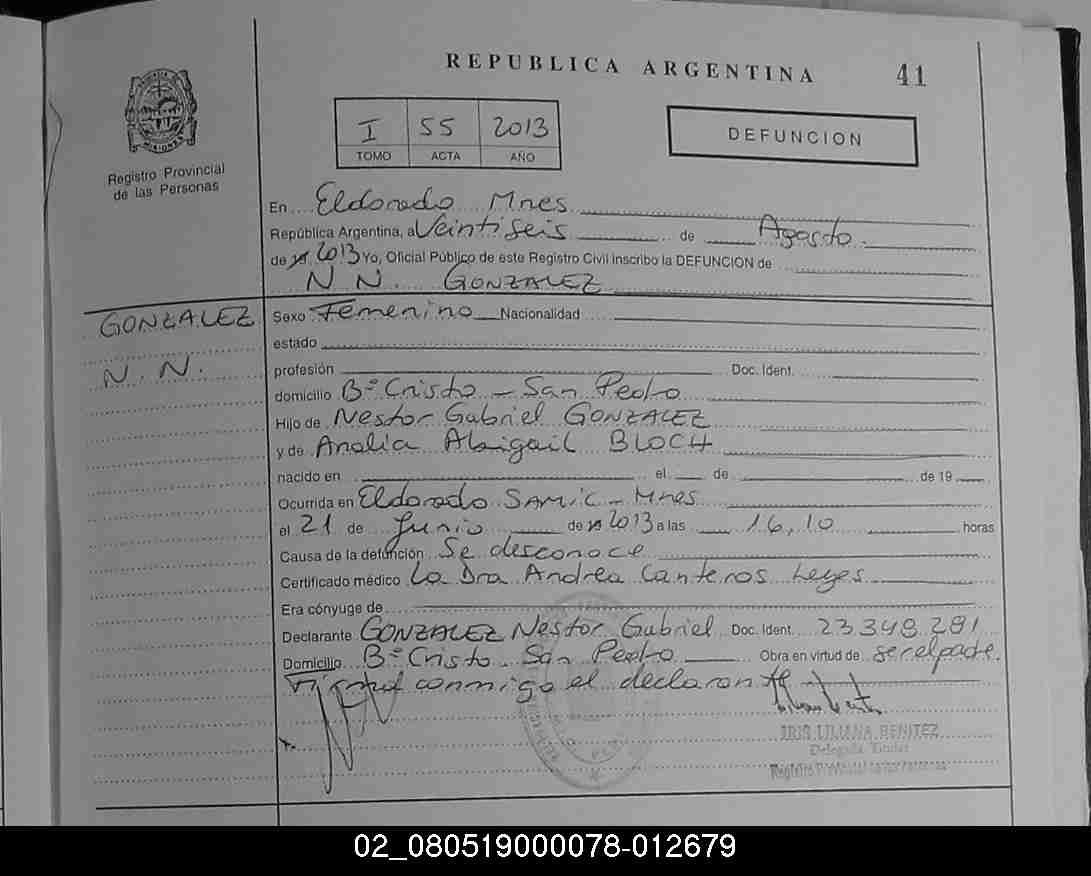 REPUBLICA ARGENTINA 41
I 55 2013
TOMO ACTA AÑO
DEFUNCION
Registro Provincial
de las Personas
En Eldorado Mnes
República Argentina, a Veintiseis de Agosto
de 2013 Yo, Oficial Público de este Registro Civil inscribo la DEFUNCION de
N N. GONZALEZ
GONZALEZ
N. N.
Sexo Femenino Nacionalidad
estado
profesión Doc. Ident.
domicilio Bº Cristo - San Pedro
Hijo de Nestor Gabriel GONZALEZ
y de Analia Abigail BLOCH
nacido en el de de 19
Ocurrida en Eldorado SAMIC - Mnes
el 21 de Junio de 2013 a las 16,10 horas
Causa de la defunción Se desconoce
Certificado médico La Dra Andrea Canteros Leyes
Era cónyuge de
Declarante GONZALEZ Nestor Gabriel Doc. Ident. 23.348.281
Domicilio Bº Cristo San Pedro Obra en virtud de ser el padre.
conmigo el declarante
IRIS LILIANA BENITEZ
Delegada Titular
Registro Provincial de las Personas
02_080519000078-012679